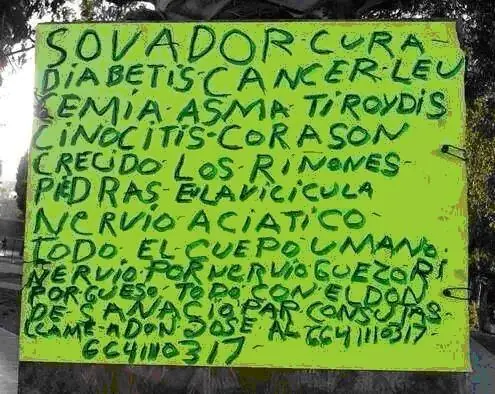 SOVADOR CURA
DIABETIS-CANCER-LEU
SEMIA-ASMA TIROYDIS
CINOCITIS-CORASON
CRECIDO LOS RINONES-
PIEDRAS-ELAVICICULA
NERVIO ACIATICO-
TODO EL CUEPO UMANO.
NERVIO-POR NERVIO GUEZO RI
POR GUESO TODO CON EL DON
DE SANACIO PAR CONSUTAS
LLAME A DON JOSE AL 6641110317
6641110317